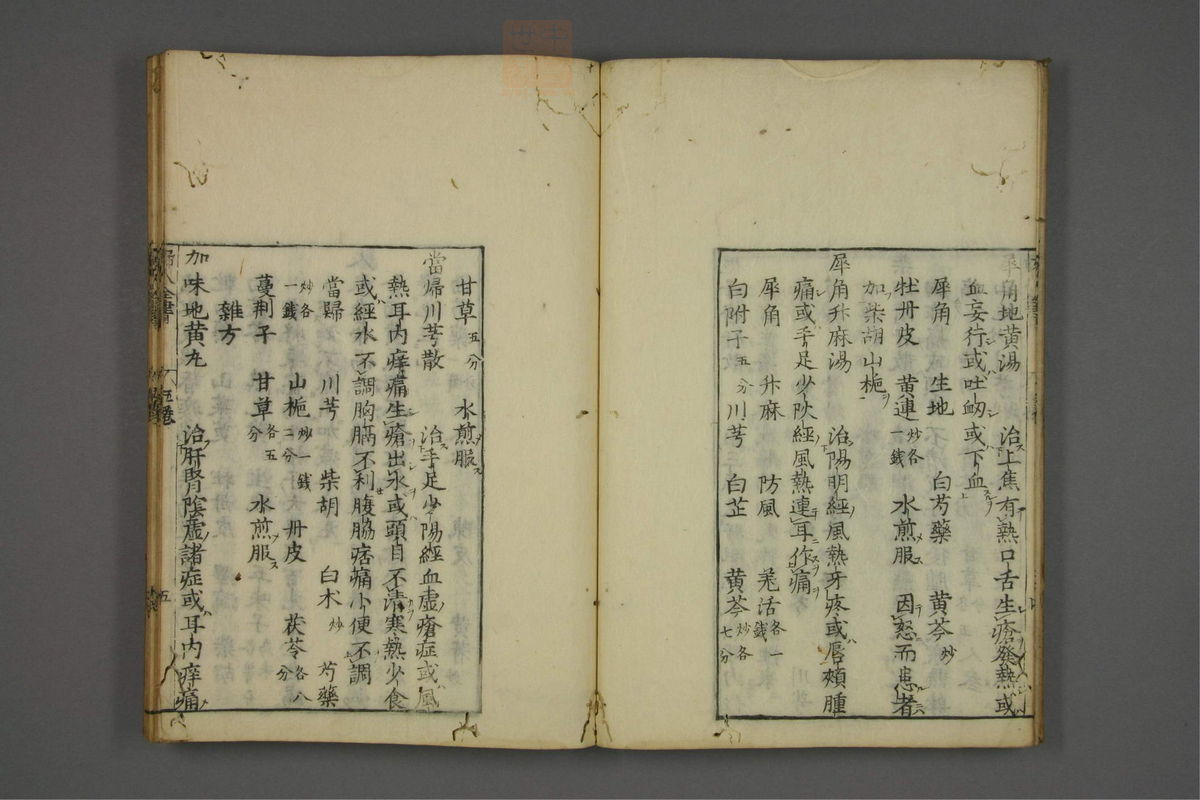 犀角地黄湯　治上焦有熱口舌生瘡發熱或
血妄行或吐衂或下血
犀角　生地　白芍藥　黄芩炒
牡丹皮　黄連炒各一錢　水煎服　因怒而患者
加柴胡山梔
犀角升麻湯　治陽明經風熱牙疼或唇頰腫
痛或手足少陽經風熱連耳作痛
犀角　升麻　防風　羌活各一錢
白附子五分　川芎　白芷　黄芩炒各七分
甘草五分　水煎服
當歸川芎散　治手足少陽經血虚瘡症或風
熱耳内痒痛生瘡出水或頭目不清寒熱少食
或經水不調胸膈不利腹脇痞痛小便不調
當歸　川芎　柴胡　白术炒　芍藥
炒各一錢　山梔炒一錢二分　丹皮　茯苓各八分
蔓荆子　甘草各五分　水煎服
雜方
加味地黄丸　治肝腎陰虚諸症或耳内痒痛